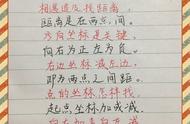 相遇追及找距离，
距离是在两点间。
方向坐标是关键，
向右为正左为负。
右边坐标减左边，
即为两点之间距。
点的坐标怎样找，
起点坐标加或减，